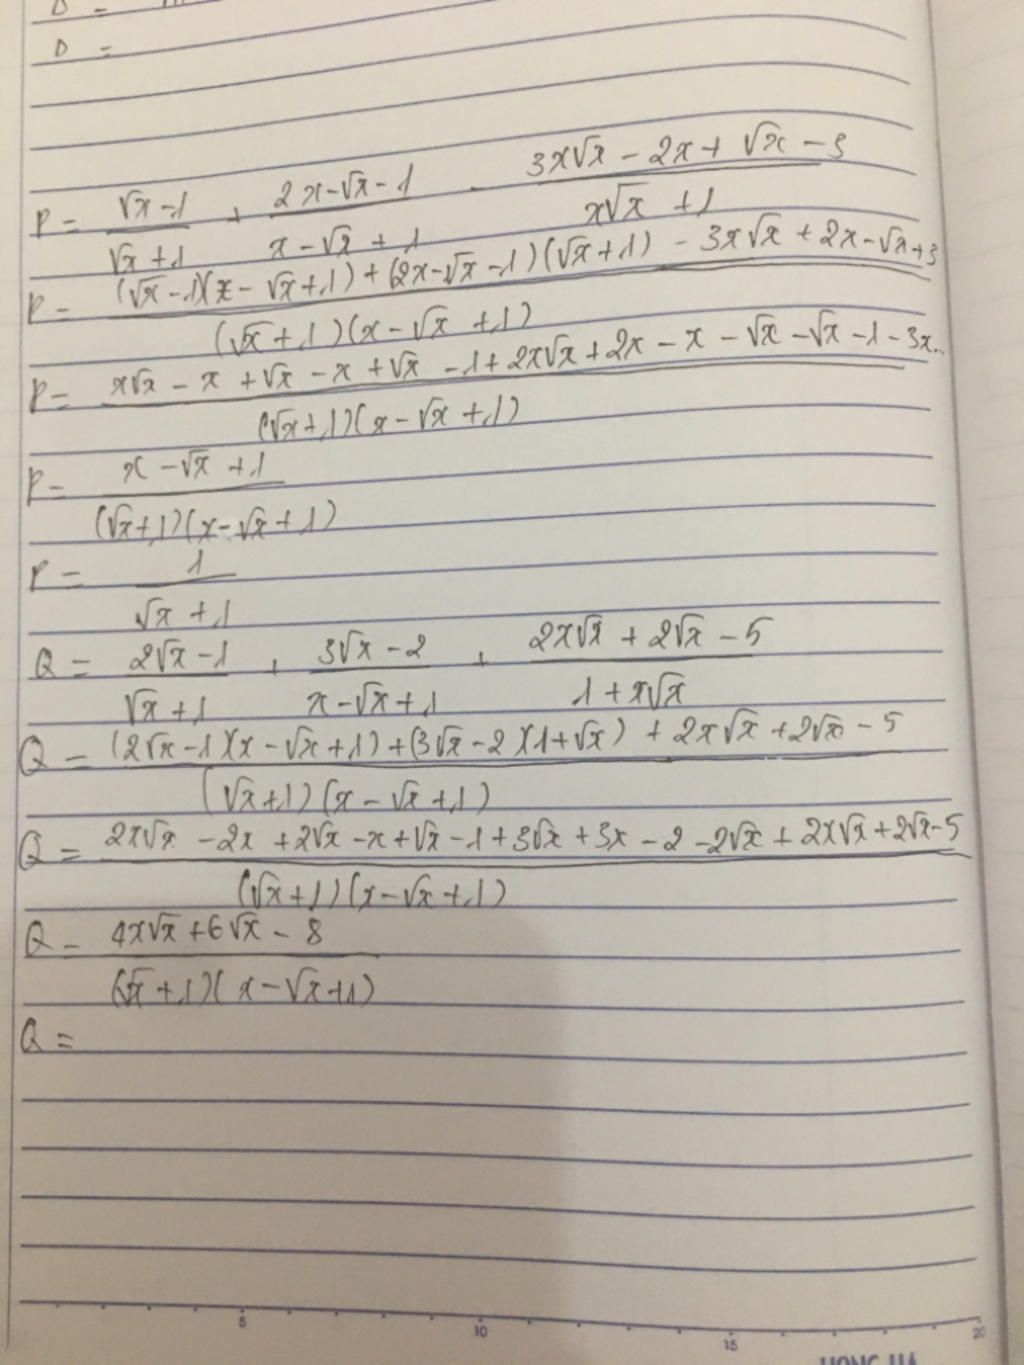 D =
D =
P = (√x - 1)/(√x + 1) + (2x - √x - 1)/(x - √x + 1) - (3x√x - 2x + √x - 3)/(x√x + 1)
P = ((√x - 1)(x - √x + 1) + (2x - √x - 1)(√x + 1) - 3x√x + 2x - √x + 3)/((√x + 1)(x - √x + 1))
P = (x√x - x + √x - x + √x - 1 + 2x√x + 2x - x - √x - √x - 1 - 3x...)/((√x + 1)(x - √x + 1))
P = (x - √x + 1)/((√x + 1)(x - √x + 1))
P = 1/(√x + 1)
Q = (2√x - 1)/(√x + 1) + (3√x - 2)/(x - √x + 1) + (2x√x + 2√x - 5)/(1 + x√x)
Q = ((2√x - 1)(x - √x + 1) + (3√x - 2)(1 + √x) + 2x√x + 2√x - 5)/((√x + 1)(x - √x + 1))
Q = (2x√x - 2x + 2√x - x + √x - 1 + 3√x + 3x - 2 - 2√x + 2x√x + 2√x - 5)/((√x + 1)(x - √x + 1))
Q = (4x√x + 6√x - 8)/((√x + 1)(x - √x + 1))
Q =
5 10 15 20